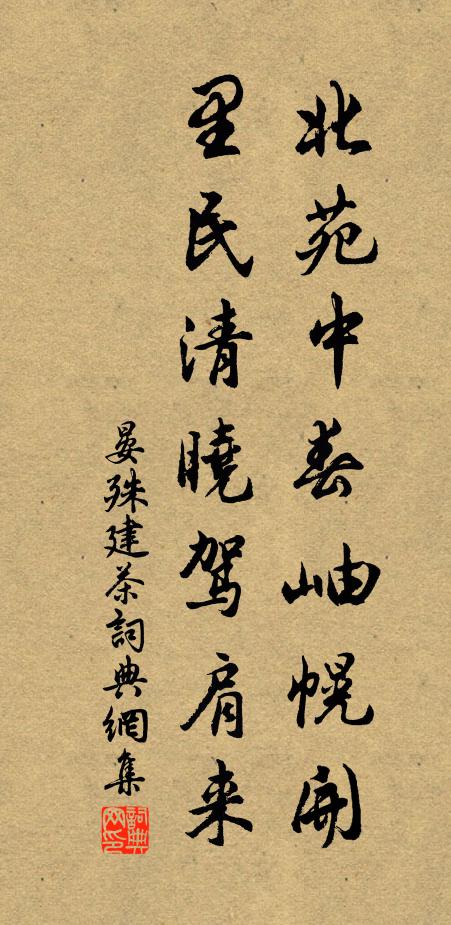 北苑中春岫幌開
里民清曉駕肩来
晏殊建茶詞典網集
詞典網印